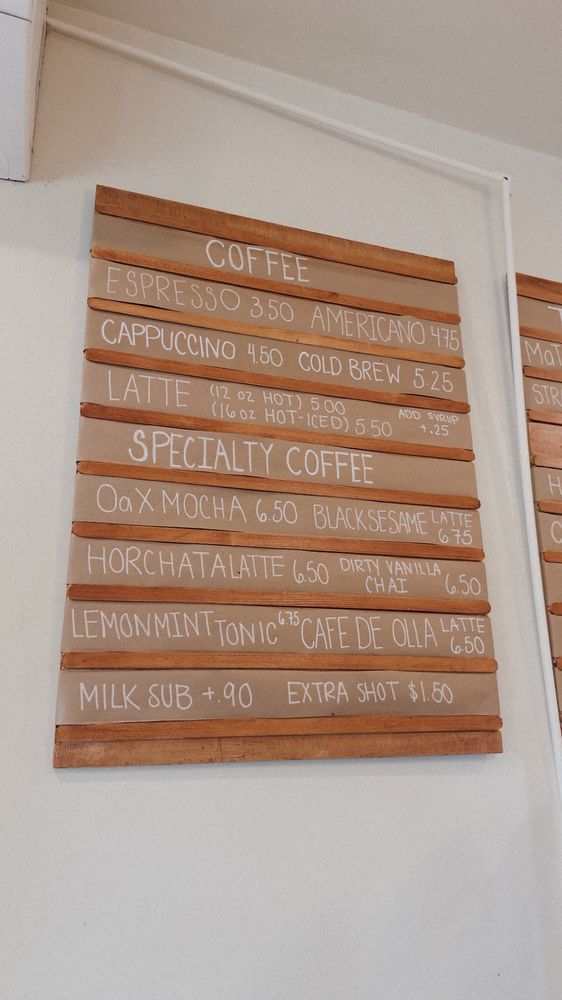 COFFEE
ESPRESSO 3.50 AMERICANO 4.75
CAPPUCCINO 4.50 COLD BREW 5.25
LATTE (12 OZ HOT) 5.00
(16 OZ HOT-ICED) 5.50
ADD SYRUP
+.25
SPECIALTY COFFEE
OaX MOCHA 6.50 BLACK SESAME LATTE
6.75
HORCHATA LATTE 6.50 DIRTY VANILLA
CHAI 6.50
LEMON MINT TONIC 6.75 CAFE DE OLLA LATTE
6.50
MILK SUB +.90 EXTRA SHOT $1.50